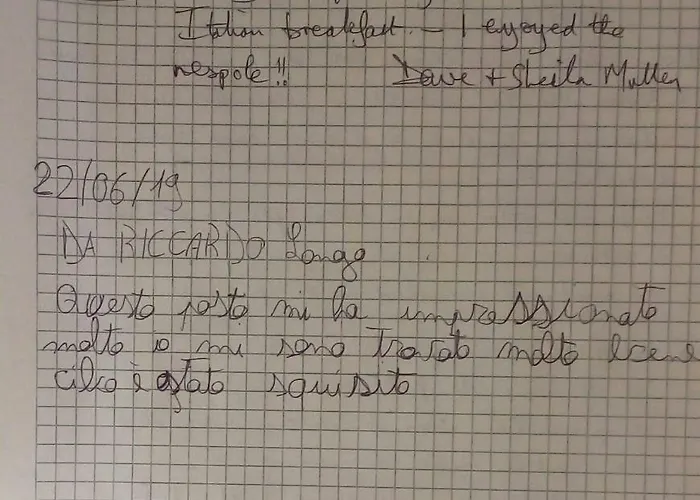 Italian breakfast. – I enjoyed the
nespole!! Dave + Sheila Mullen
22/06/19
DA RICCARDO Longo
Questo posto mi ha impressionato
molto io mi sono trovato molto bene
cibo è stato squisito